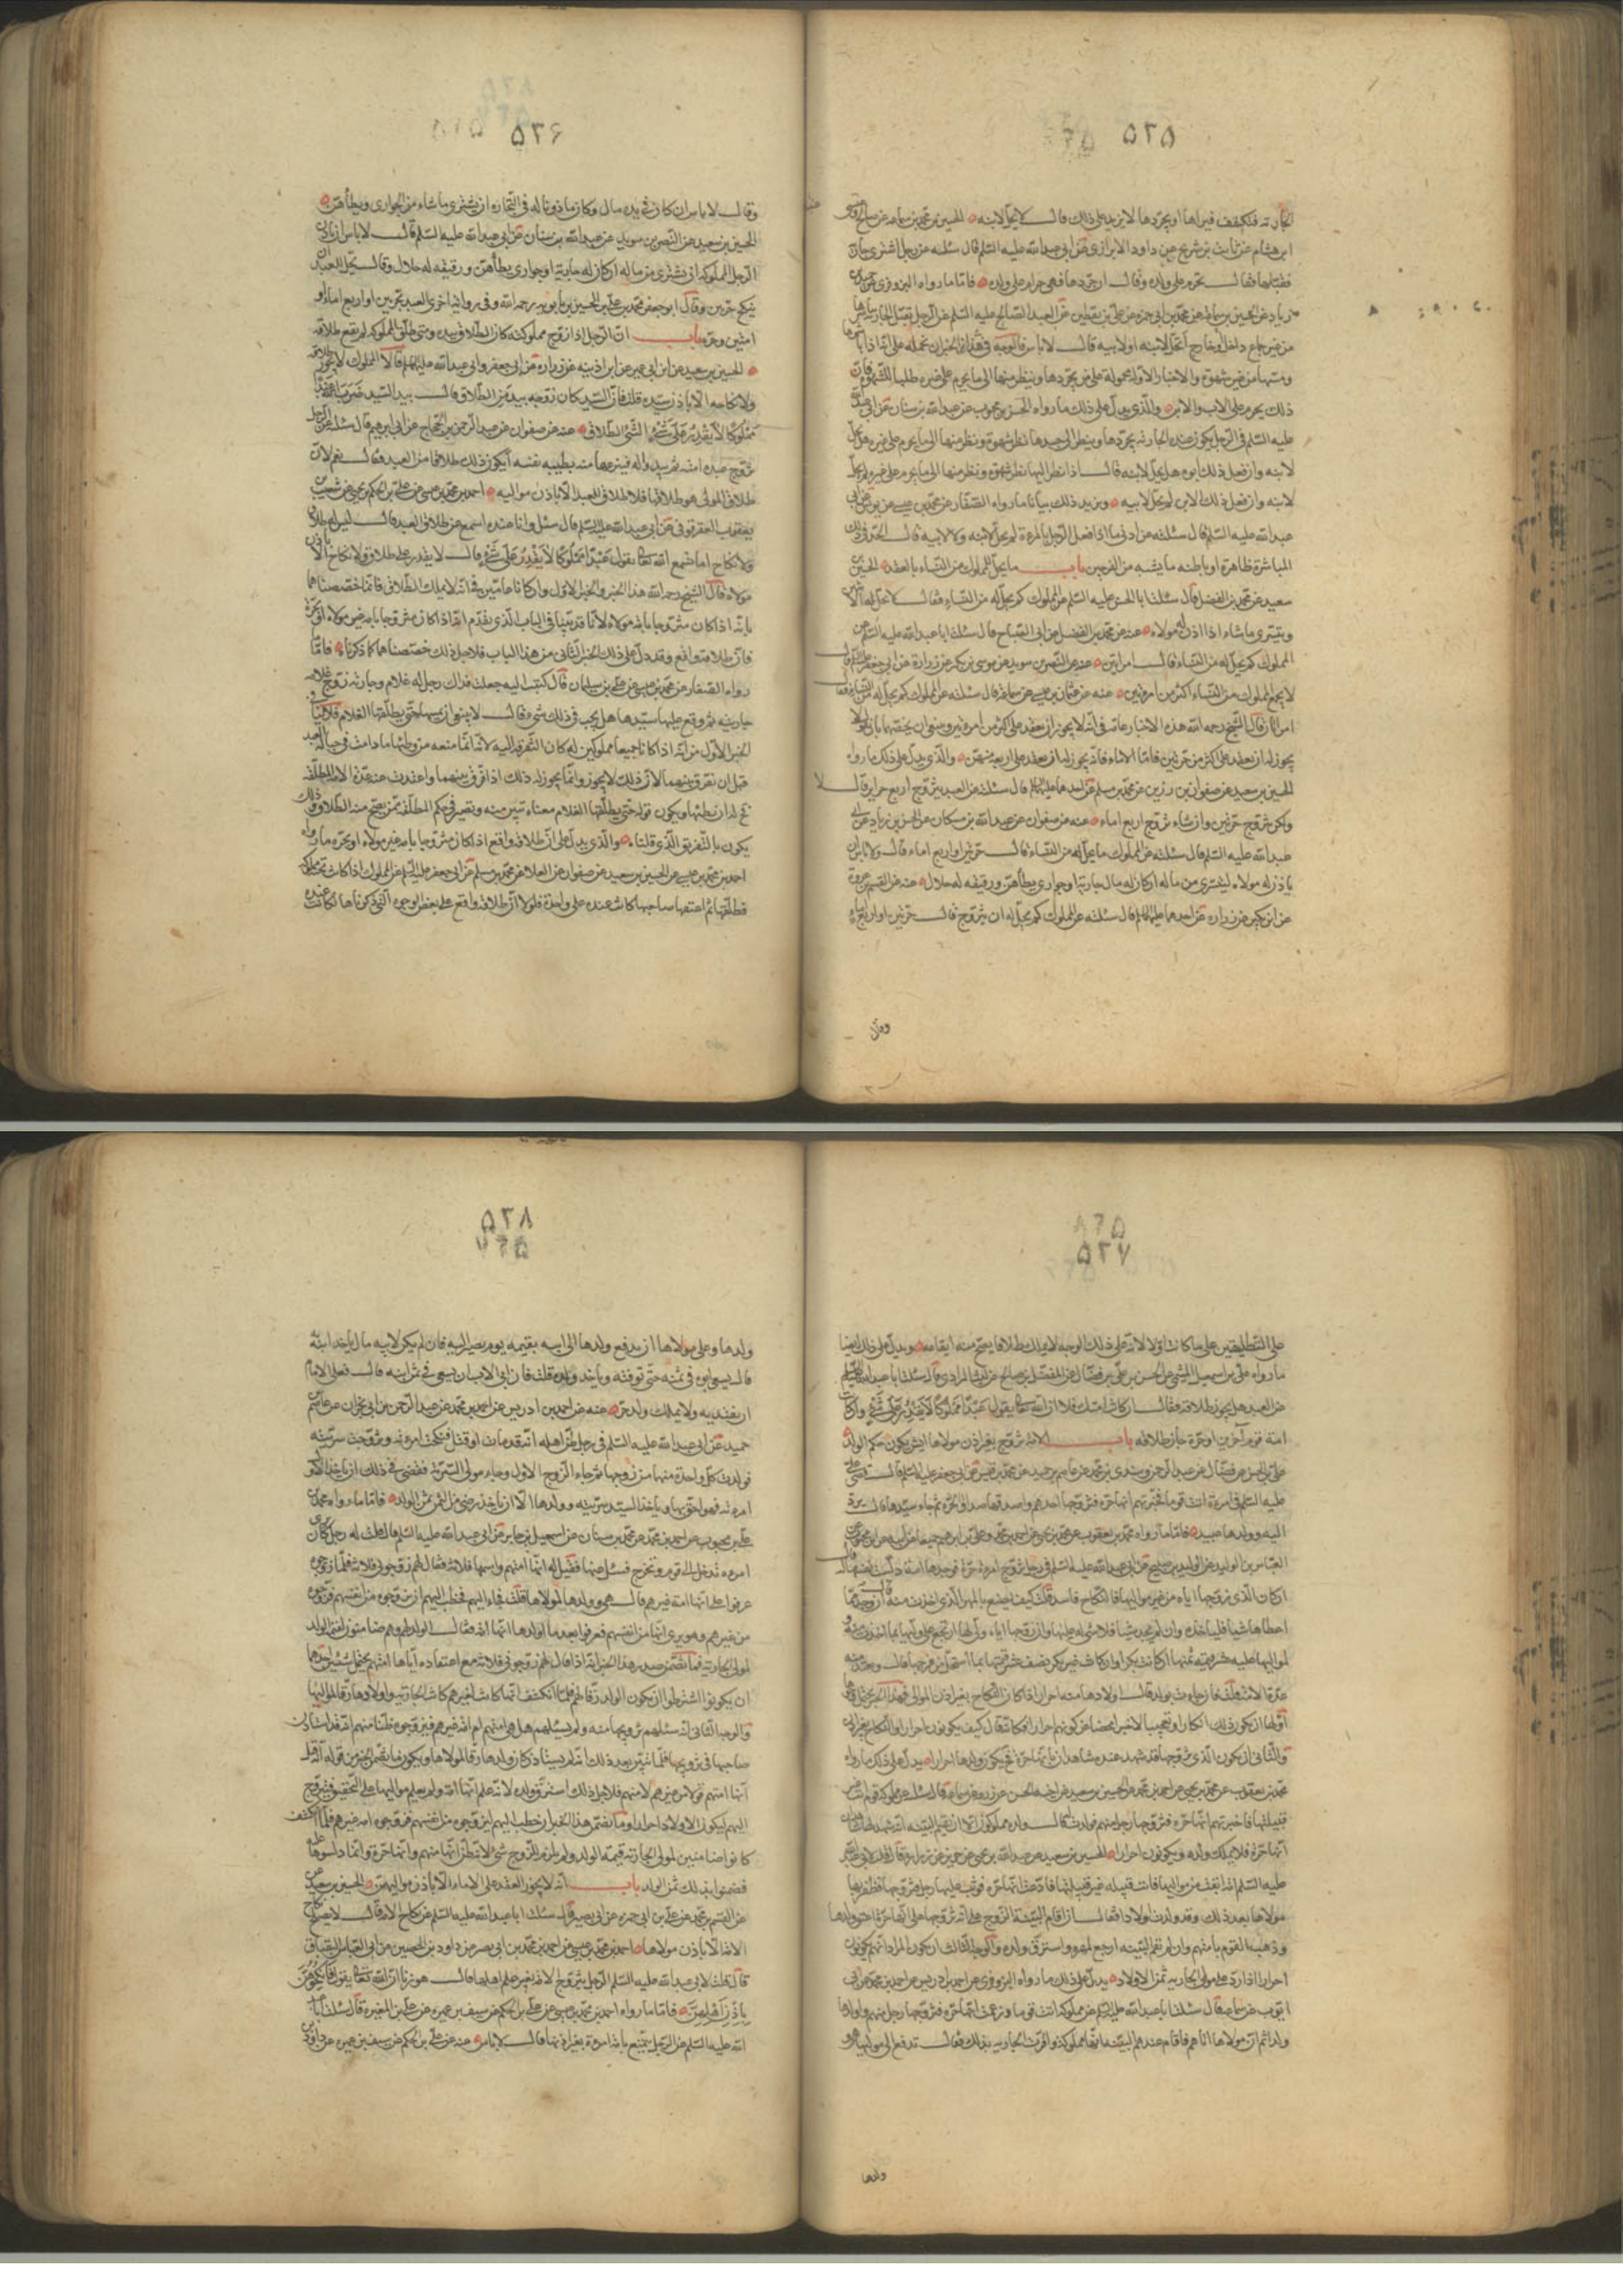 ٥٢٥
الجارية فيكشف فيراها او يجردها لا يزيد على ذلك قال لا يحل لابنه الحسين بن محمد بن سماعه عن صالح
ابن هشام عن ثابت بن شريح عن داود الابزاري عن ابي عبد الله عليه السلم قال سئلته عن رجل اشترى جارية
فقبلها فقال تحرم على ولده وقال ان جردها فهي حرام على ولده فاما ما رواه البزوفري عن
زياد عن الحسين بن محمد بن ابي حمزه عن علي بن يقطين عن العبد الصالح عليه السلم عن الرجل يقبل الجارية يباشرها
من غير جماع داخل او خارج أتحل لابنه او لابيه قال لا باس فالوجه في هذا الخبر ان نحمله على انه اذا باشرها
ومسها من غير شهوة والاخبار الاوله محمولة على من يجردها وينظر منها الى ما يحرم على غيره طلبا للشهوة فان
ذلك يحرم على الاب والابن والذي يدل على ذلك ما رواه الحسن بن محبوب عن عبد الله بن سنان عن ابي عبد الله
عليه السلم في الرجل يكون عنده الجارية يجردها وينظر الى جسدها نظر شهوة ونظر منها الى ما يحرم على غيره هل تحل
لابنه وان فعل ذلك ابوه هل يحل لابنه قال اذا نظر اليها نظر شهوة ونظر منها الى ما يحرم على غيره لم تحل
لابنه وان فعل ذلك الابن لم يحل لابيه ويزيد ذلك بيانا ما رواه الصفار عن محمد بن عيسى عن يونس عن ابي
عبد الله عليه السلم قال سئلته عن ادنى ما اذا فعل الرجل بالمرءة لم تحل لابنه ولا لابيه قال الحد في ذلك
المباشرة ظاهرة او باطنه ما يشبه مس الفرجين باب ما يحل للمملوك من النساء بالعقد الحسين
سعيد عن محمد بن الفضيل قال سئلت ابا الحسن عليه السلم عن المملوك كم يحل له من النساء فقال لا يحل له الا
ويتسرى ما شاء اذا اذن له مولاه عنه عن محمد بن الفضيل عن ابي الصباح قال سئلت ابا عبد الله عليه السلم عن
المملوك كم يحل له من النساء قال امراتين عنه عن النضر بن سويد عن موسى بن بكر عن زرارة عن ابي جعفر عليه السلم قال
لا يجمع المملوك من النساء اكثر من امرءتين عنه عن عثمان بن عيسى عن سماعة قال سئلته عن المملوك كم يحل له من النساء فقال
امراتان قال الشيخ رحمه الله هذه الاخبار عامه في انه لا يجوز ان يعقد على اكثر من امرءتين وينبغي ان نخصها بان نقول لا
يجوز له ان يعقد على اكثر من حرتين فاما الاماء فانه يجوز له ان يعقد على اربع منهن والذي يدل على ذلك ما رواه
الحسين بن سعيد عن صفوان بن رزين عن محمد بن مسلم عن احدهما عليهما السلم قال سئلته عن العبد يتزوج اربع حراير قال لا
ولكن يتزوج حرتين وان شاء تزوج اربع اماء عنه عن صفوان عن عبد الله بن مسكان عن الحسن بن زياد عن ابي
عبد الله عليه السلم قال سئلته عن المملوك ما يحل له من النساء قال حرتين او اربع اماء قال ولا باس ان
ياذن له مولاه ليشتري من ماله ان كان له مال جارية او جواري يطأهن ورقيقه له حلال عنه عن القسم بن عروة
عن ابن بكير عن زراره عن احدهما عليهما السلم قال سئلته عن المملوك كم يحل له ان يتزوج قال حرتين او اربع اماء
وقال
٥٢٦
وقال لا باس ان كان في يده مال وكان ماذونا له في التجارة ان يشتري ما شاء من الجواري ويطأهن
الحسين بن سعيد عن النضر بن سويد عن عبد الله بن سنان عن ابي عبد الله عليه السلم قال لا باس ان ياذن
الرجل لمملوكه ان يشتري من ماله ان كان له جارية او جواري يطأهن ورقيقه له حلال وقال يحل للعبد ان
ينكح حرتين وقال ابو جعفر محمد بن علي بن الحسين بن بابويه رحمه الله وفي رواية اخرى العبد يتزوج حرتين او اربع اماء او
امتين وحره باب ان الرجل اذا زوج مملوكته كان الطلاق بيده ومتى طلق المملوك لم يقع طلاقه
الحسين بن سعيد عن ابن ابي عمير عن ابن اذينه عن زراره عن ابي جعفر وابي عبد الله عليهما السلم قالا المملوك لا يجوز طلاقه
ولا نكاحه الا باذن سيده قلت فان السيد كان زوجه بيد من الطلاق قال بيد السيد ضرب الله مثلا عبدا
مملوكا لا يقدر على شيء الشيء الطلاق عنه عن صفوان عن عبد الرحمن بن الحجاج عن ابي ابرهيم قال سئلته عن الرجل
يزوج عبده امته ثم يبدو له فينزعها منه بطيبه نفسه أيكون ذلك طلاقا من العبد فقال نعم لان
طلاق المولى هو طلاقها فلا طلاق للعبد الا باذن مواليه احمد بن محمد بن عيسى عن علي بن الحكم عن شعيب
يعقوب العقرقوفي عن ابي عبد الله عليه السلم قال سئل وانا عنده اسمع عن طلاق العبد قال ليس له طلاق
ولا نكاح اما تسمع الله تعالى يقول عبدا مملوكا لا يقدر على شيء قال لا يقدر على طلاق ولا نكاح الا باذن
مولاه قال الشيخ رحمه الله هذا الخبر والخبر الاول وان كانا عامين في انه لا يملك الطلاق فانا خصصناهما
بانه اذا كان متزوجا بامة مولاه لانا قد بينا في الباب الذي تقدم انه اذا كان متزوجا بامه غير مولاه او حرة
فان طلاقه واقع وقد دل على ذلك الخبر الثاني من هذا الباب فلاجل ذلك خصصناهما كما ذكرناه فاما
رواه الصفار عن محمد بن عيسى عن علي بن سليمان قال كتبت اليه جعلت فداك رجل له غلام وجارية زوج غلامه
جاريته ثم وقع عليها سيدها هل يجب في ذلك شيء قال لا ينبغي ان يمسها حتى يطلقها الغلام فلا ينافي
الخبر الاول من انه اذا كانا جميعا مملوكين له كان التفرقه اليه لانه انما منعه من وطئها ما دامت في حبالة العبد
قبل ان يفرق بينهما لان ذلك لا يجوز وانما يجوز له ذلك اذا فرق بينهما واعتدت منه عدة الامه المطلقه
ثم له ان يطئها ويكون قوله حتى يطلقها الغلام معناه تبين منه وتصير في حكم المطلقه ممن يصح منه الطلاق وذلك
يكون بالتفريق الذي قلناه والذي يدل على ان طلاقه واقع اذا كان متزوجا بامه غير مولاه او بحره ما رواه
احمد بن محمد بن عيسى عن الحسين بن سعيد عن صفوان عن العلا عن محمد بن مسلم عن ابي جعفر عليه السلم عن المملوك اذا كانت تحته مملوكه
فطلقها ثم اعتقها صاحبها كانت عنده على واحدة فلولا ان طلاقه واقع على بعض الوجوه التي ذكرناها لكانت عنده
٥٢٧
على التطليقتين على ما كانت اولا لانه على ذلك الوجه لا يملك طلاقا يصح منه ايقاعه ويدل على ذلك ايضا
ما رواه علي بن اسمعيل الميثمي عن الحسن بن علي بن فضال عن المفضل بن صالح عن ليث المرادي قال سئلت ابا عبد الله عليه السلم
عن العبد هل يجوز طلاقه فقال ان كانت امتك فلا ان الله تعالى يقول عبدا مملوكا لا يقدر على شيء وان كانت
امة قوم آخرين او حرة جاز طلاقه باب الامة تزوج بغير اذن مولاها ايش يكون حكم الولد
علي بن الحسن بن فضال عن عبد الرحمن وسندي بن محمد عن عاصم بن حميد عن محمد بن قيس عن ابي جعفر عليه السلم قال قضى علي
عليه السلم في امرءة اتت قوما فخبرتهم انها حرة فتزوجها احدهم واصدقها صداق الحرة ثم جاء سيدها قال ترد
اليه وولدها عبيد فاما ما رواه محمد بن يعقوب عن محمد بن يحيى عن احمد بن محمد وعلي بن ابرهيم جميعا عن ابيه عن ابن محبوب عن
العباس بن الوليد عن الوليد بن صبيح عن ابي عبد الله عليه السلم في رجل تزوج امرءة حرة فوجدها امة دلست نفسها قال
ان كان الذي زوجها اياه من غير مواليها فالنكاح فاسد قلت كيف يصنع بالمهر الذي اخذت منه قال ان وجد مما
اعطاها شيئا فلياخذه وان لم يجد شيئا فلا شيء له عليها وان زوجها اياه ولي لها ارتجع على وليها بما اخذت منه و
لمواليها عليه عشر قيمة ثمنها ان كانت بكرا وان كانت غير بكر نصف عشر قيمتها بما استحل من فرجها قال وتعتد منه
عدة الامة قلت فان جاءت بولد قال اولادها منه احرار اذا كان النكاح بغير اذن الموالي فهذا الخبر يحتمل
اولها ان يكون ذلك انكارا وتعجبا لا خبرا محضا عن كونهم احرارا فكانه قال كيف يكونون احرارا والنكاح بغير اذن
والثاني ان يكون الذي تزوجها قد شهد عنده شاهدان بانها حرة فيكون ولدها احرارا يدل على ذلك ما رواه
محمد بن يعقوب عن محمد بن يحيى عن احمد بن محمد عن الحسين بن سعيد عن اخيه الحسن عن زرعه عن سماعة قال سئلته عن مملوكه قوم اتت
قبيلتها فاخبرتهم انها حره فتزوجها رجل منهم فولدت له قال ولده مملوكون الا ان يقيم البينه انه شهد لها شاهد
انها حرة فلا يملك ولده ويكونون احرارا الحسين بن سعيد عن عبد الله بن يحيى عن حريز عن زراره قال قلت لابي عبد الله
عليه السلم امة ابقت من مواليها فاتت قبيله غير قبيلتها فادعت انها حرة فوثب عليها رجل فتزوجها فظفر بها
مولاها بعد ذلك وقد ولدت اولادا فقال ان اقام البينة الزوج على انه تزوجها على انها حرة اعتق ولدها
وذهب القوم بامتهم وان لم يقم البينه اوجع ظهره واسترق ولده والوجه الثالث ان يكون المراد انهم يكونون
احرارا اذا رد على مولى الجارية ثمن الاولاد يدل على ذلك ما رواه البزوفري عن احمد بن ادريس عن احمد بن محمد عن ابي
ايوب عن سماعة قال سئلت ابا عبد الله عليه السلم عن مملوكه اتت قوما وزعمت انها حرة فتزوجها رجل منهم واولدها
ولدا ثم ان مولاها اتاهم فاقام عندهم البينه انها مملوكته واقرت الجاريه بذلك فقال تدفع الى مولاها هي و
ولدها
٥٢٨
ولدها وعلى مولاها ان يدفع ولدها الى ابيه بقيمه يوم يصير اليه فان لم يكن لابيه مال ياخذ ابنه به
قال يسعى ابوه في ثمنه حتى يوفيه وياخذ ولده قلت فان ابى الاب ان يسعى في ثمن ابنه قال فعلى الامام
ان يفتديه ولا يملك ولد حر عنه عن احمد بن ادريس عن احمد بن محمد عن عبد الرحمن بن ابي نجران عن عاصم
حميد عن ابي عبد الله عليه السلم في رجل ظن اهله انه قد مات او قتل فنكحت امرءته وتزوجت سريته
فولدت كل واحدة منهما من زوجها ثم جاء الزوج الاول وجاء مولى السرية فقضى في ذلك ان ياخذ الاول
امرءته فهو احق بها وياخذ السيد سريته وولدها الا ان ياخذ رضى من الثمن ثمن الولد فاما ما رواه محمد بن
علي بن محبوب عن احمد بن محمد عن محمد بن سنان عن اسمعيل بن جابر عن ابي عبد الله عليه السلم قال قلت له رجل كان يرى
امرءه تدخل الى قوم وتخرج فسئل عنها فقيل له انها امتهم واسمها فلانة فقال لهم زوجوني فلانة فلما زوجوه
عرفوا على انها امة غيرهم قال هي وولدها لمولاها قلت فجاء اليهم فخطب اليهم ان يزوجوه من انفسهم فزوجوه
من غيرهم وهو يرى انها من انفسهم فعرفوا بعدما اولدها انها امة فقال الولد له وهم ضامنون لقيمة الولد
لمولى الجارية فما تضمن صدر هذا الخبر انه اذا قال لهم زوجوني فلانة مع اعتقاده انها امتهم يحتمل شيئين احدهما
ان يكونوا اشترطوا ان يكون الولد رقا لهم فلما انكشف انها كانت لغيرهم كانت الجارية واولادها رقا لمواليها
والوجه الثاني انه سئلهم تزويجها منه ولم يسئلهم هل هي امتهم ام امة غيرهم فزوجوه ظنا منهم انه قد استاذن
صاحبها في تزويجها فلما تبين بعد ذلك انه لم يستاذن كان ولدها رقا لمولاها ويكون ما تضمن الخبر من قوله انه قيل له
انها امتهم قولا من غيرهم لا منهم فلاجل ذلك استرق ولده لانه علم انها امة ولم يعلم مواليها على التحقيق فيتزوج
اليهم ليكون الاولاد احرارا وما تضمن هذا الخبر ان خطب اليهم ليزوجوه من انفسهم فزوجوه امه غيرهم فلما انكشف
كانوا ضامنين لمولى الجارية قيمة الولد ولم يلزم الزوج شيء لانه ظن انها منهم وانها حرة وانما دلسوها
فضمنوا بذلك ثمن الولد باب انه لا يجوز العقد على الاماء الا باذن مواليهن الحسين بن سعيد
عن القسم بن محمد عن علي بن ابي حمزه عن ابي بصير قال سئلت ابا عبد الله عليه السلم عن نكاح الامة قال لا يصلح نكاح
الامة الا باذن مولاها احمد بن محمد بن عيسى عن احمد بن محمد بن ابي نصر عن داود بن الحصين عن ابي العباس البقباق
قال قلت لابي عبد الله عليه السلم الرجل يتزوج الامة بغير علم اهلها قال هو زنا ان الله تعالى يقول فانكحوهن
باذن اهلهن فاما ما رواه احمد بن محمد بن عيسى عن علي بن الحكم عن سيف بن عميره عن علي بن المغيره قال سئلت ابا عبد
الله عليه السلم عن الرجل يتمتع بامة امرءة بغير اذنها قال لا باس عنه عن علي بن الحكم عن سيف بن عميره عن داود بن